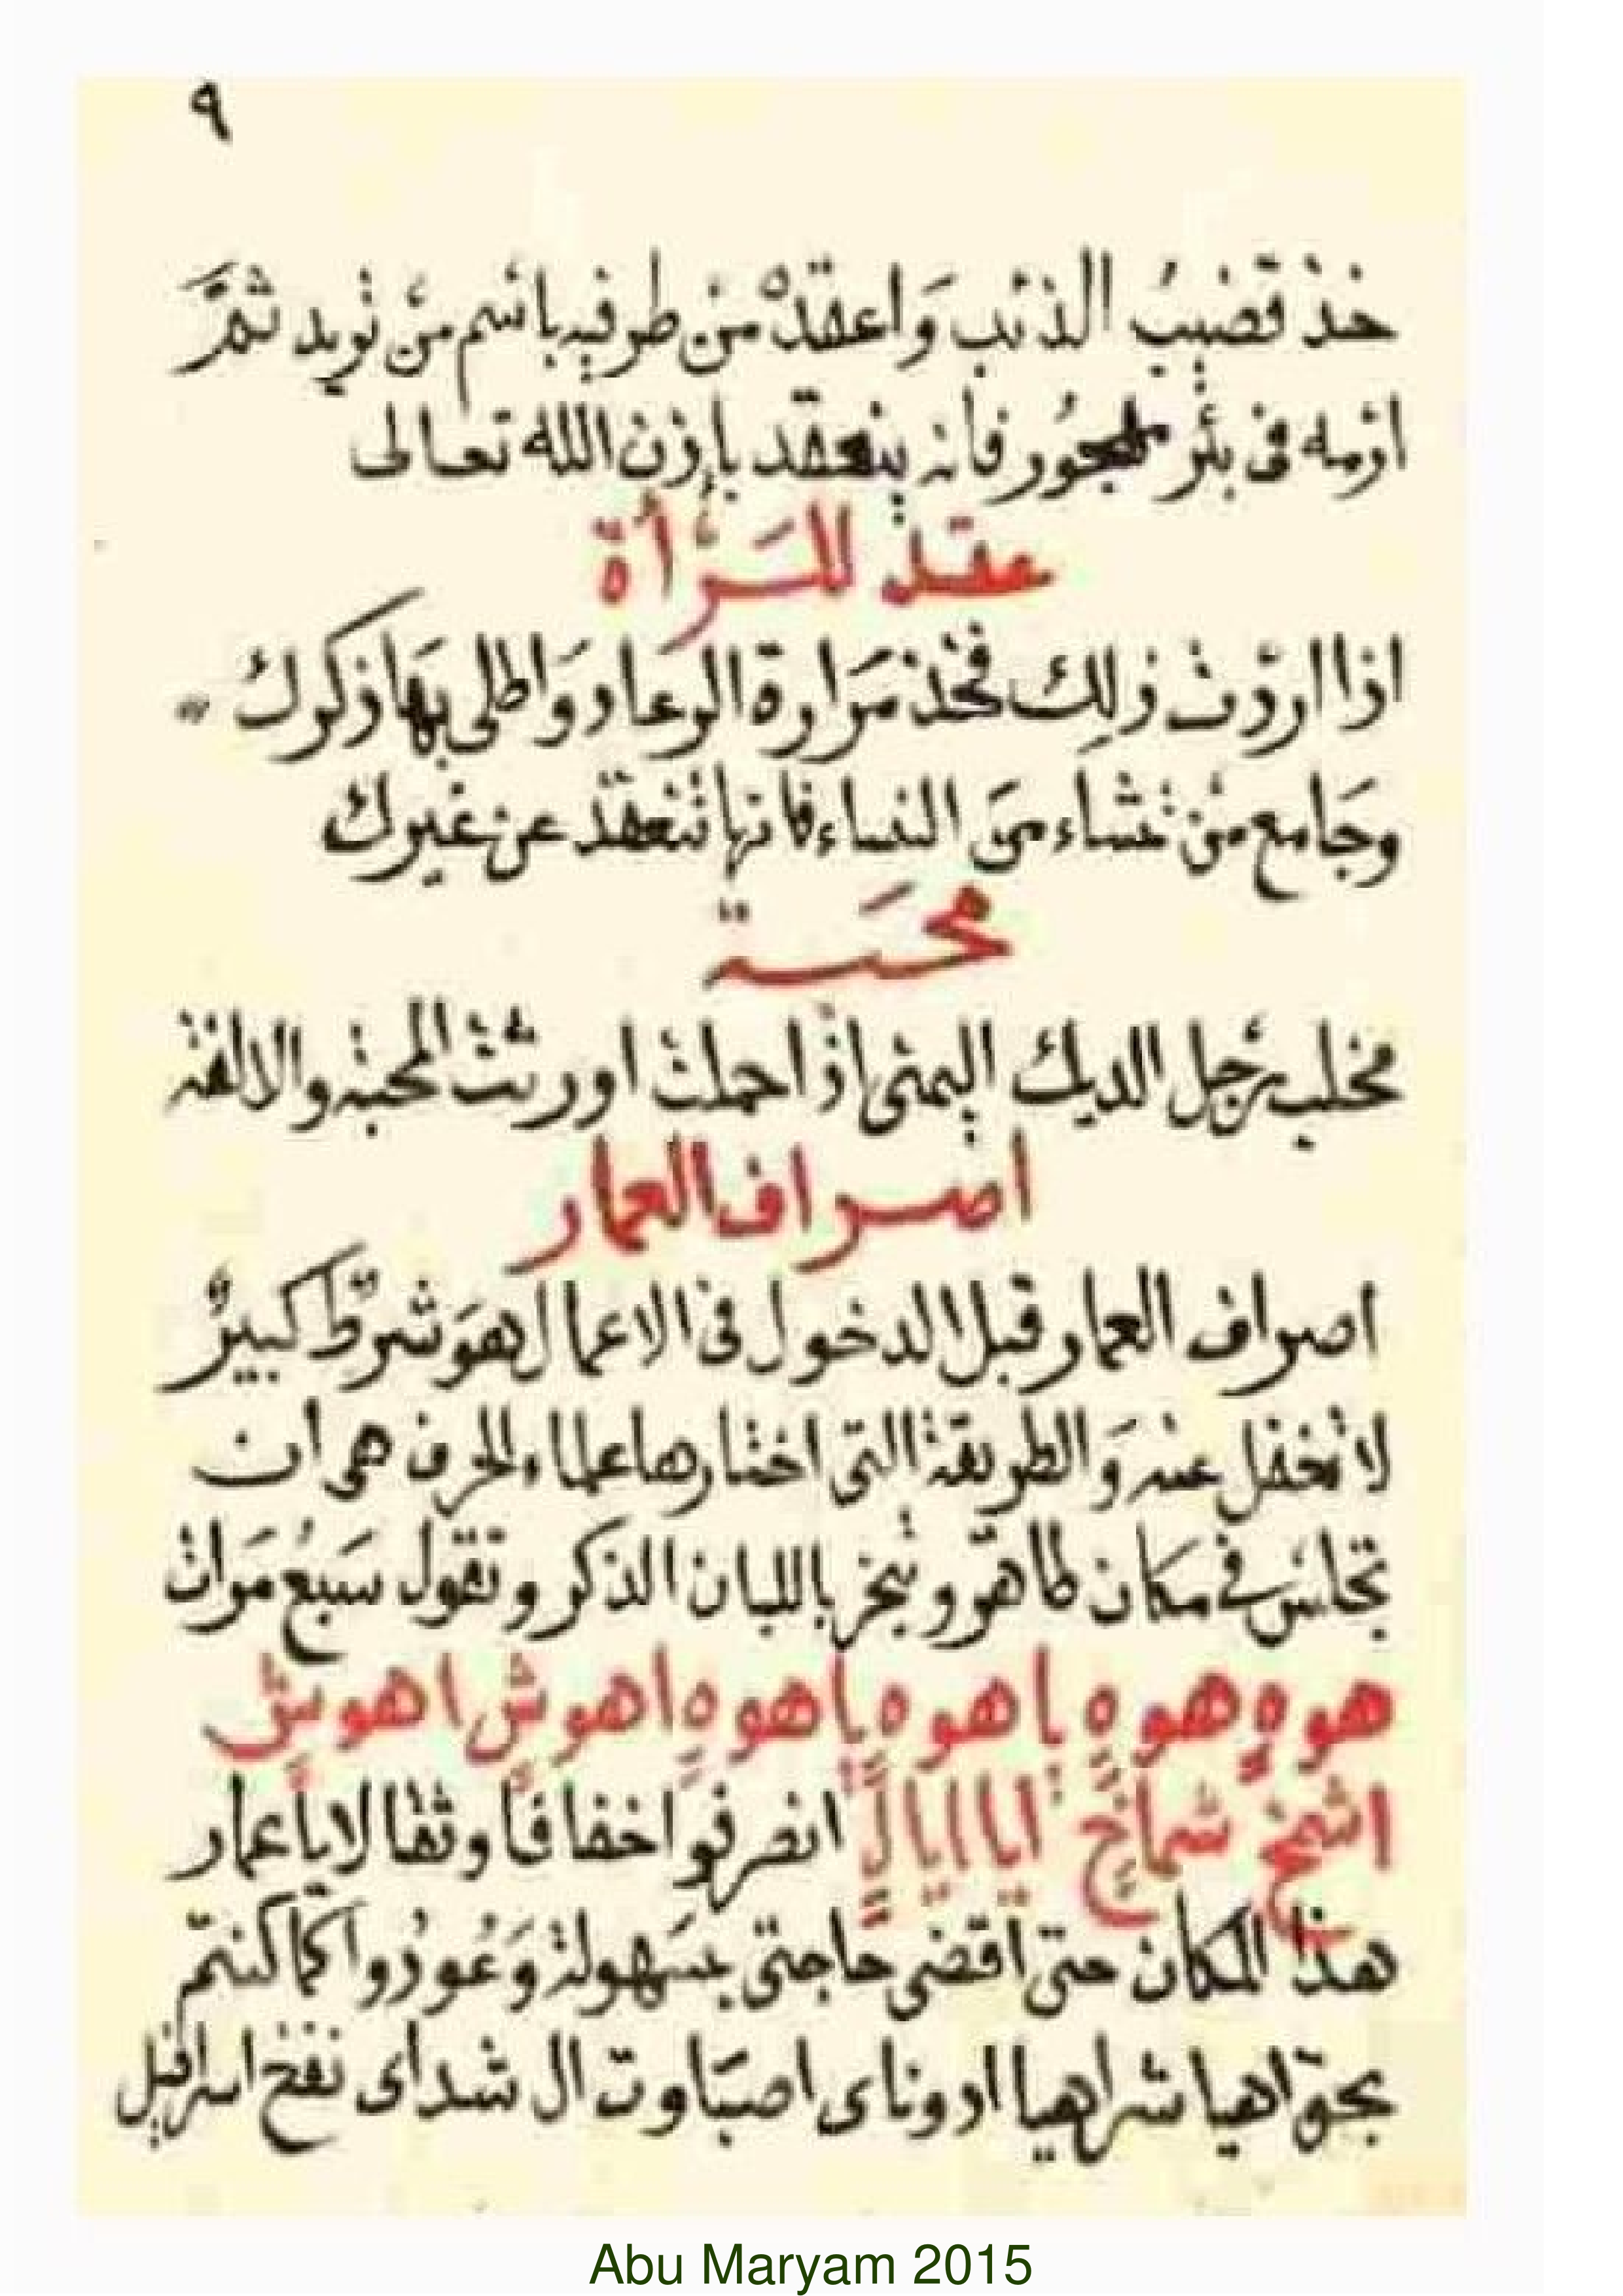 ٩
خذ قضيب الذئب واعقد من طرفيه باسم من تريد ثمَّ
ارمه فى بئر مهجور فانه ينعقد بإذن الله تعالى
عقد للمَرْأة
اذا اردْت ذلك فخذ مَرارة الرعاد وَاطلى بهَا ذكرك
وجَامع من تشاء منَ النساء فانها تنعقد عن غيرك
محَبة
مخلب رجل الديك اليمنى اذا حملت اورثت المحبة والالفة
اصراف العمار
اصراف العمار قبل الدخول فى الاعمال هوَ شرط كبيرٌ
لا تغفل عنه وَالطريقة التى اختارها علماء الحرف هى ان
تجلس فى مكان طاهر وتبخر باللبان الذكر وتقول سَبعُ مَرات
هوهٍ هوهٍ ياهوه ياهوهٍ اهوشٍ اهوشٍ
اشمخ شماخٍ ايا ايا يالٍ انصرفوا خفافًا وثقالا ياعمار
هذا المكان حتى اقضى حاجتى بسَهولة وَعُودُوا كما كنتم
بحق اهيا شراهيا ادوناى اصبَاوت ال شداى نفخ اسرافيل
Abu Maryam 2015